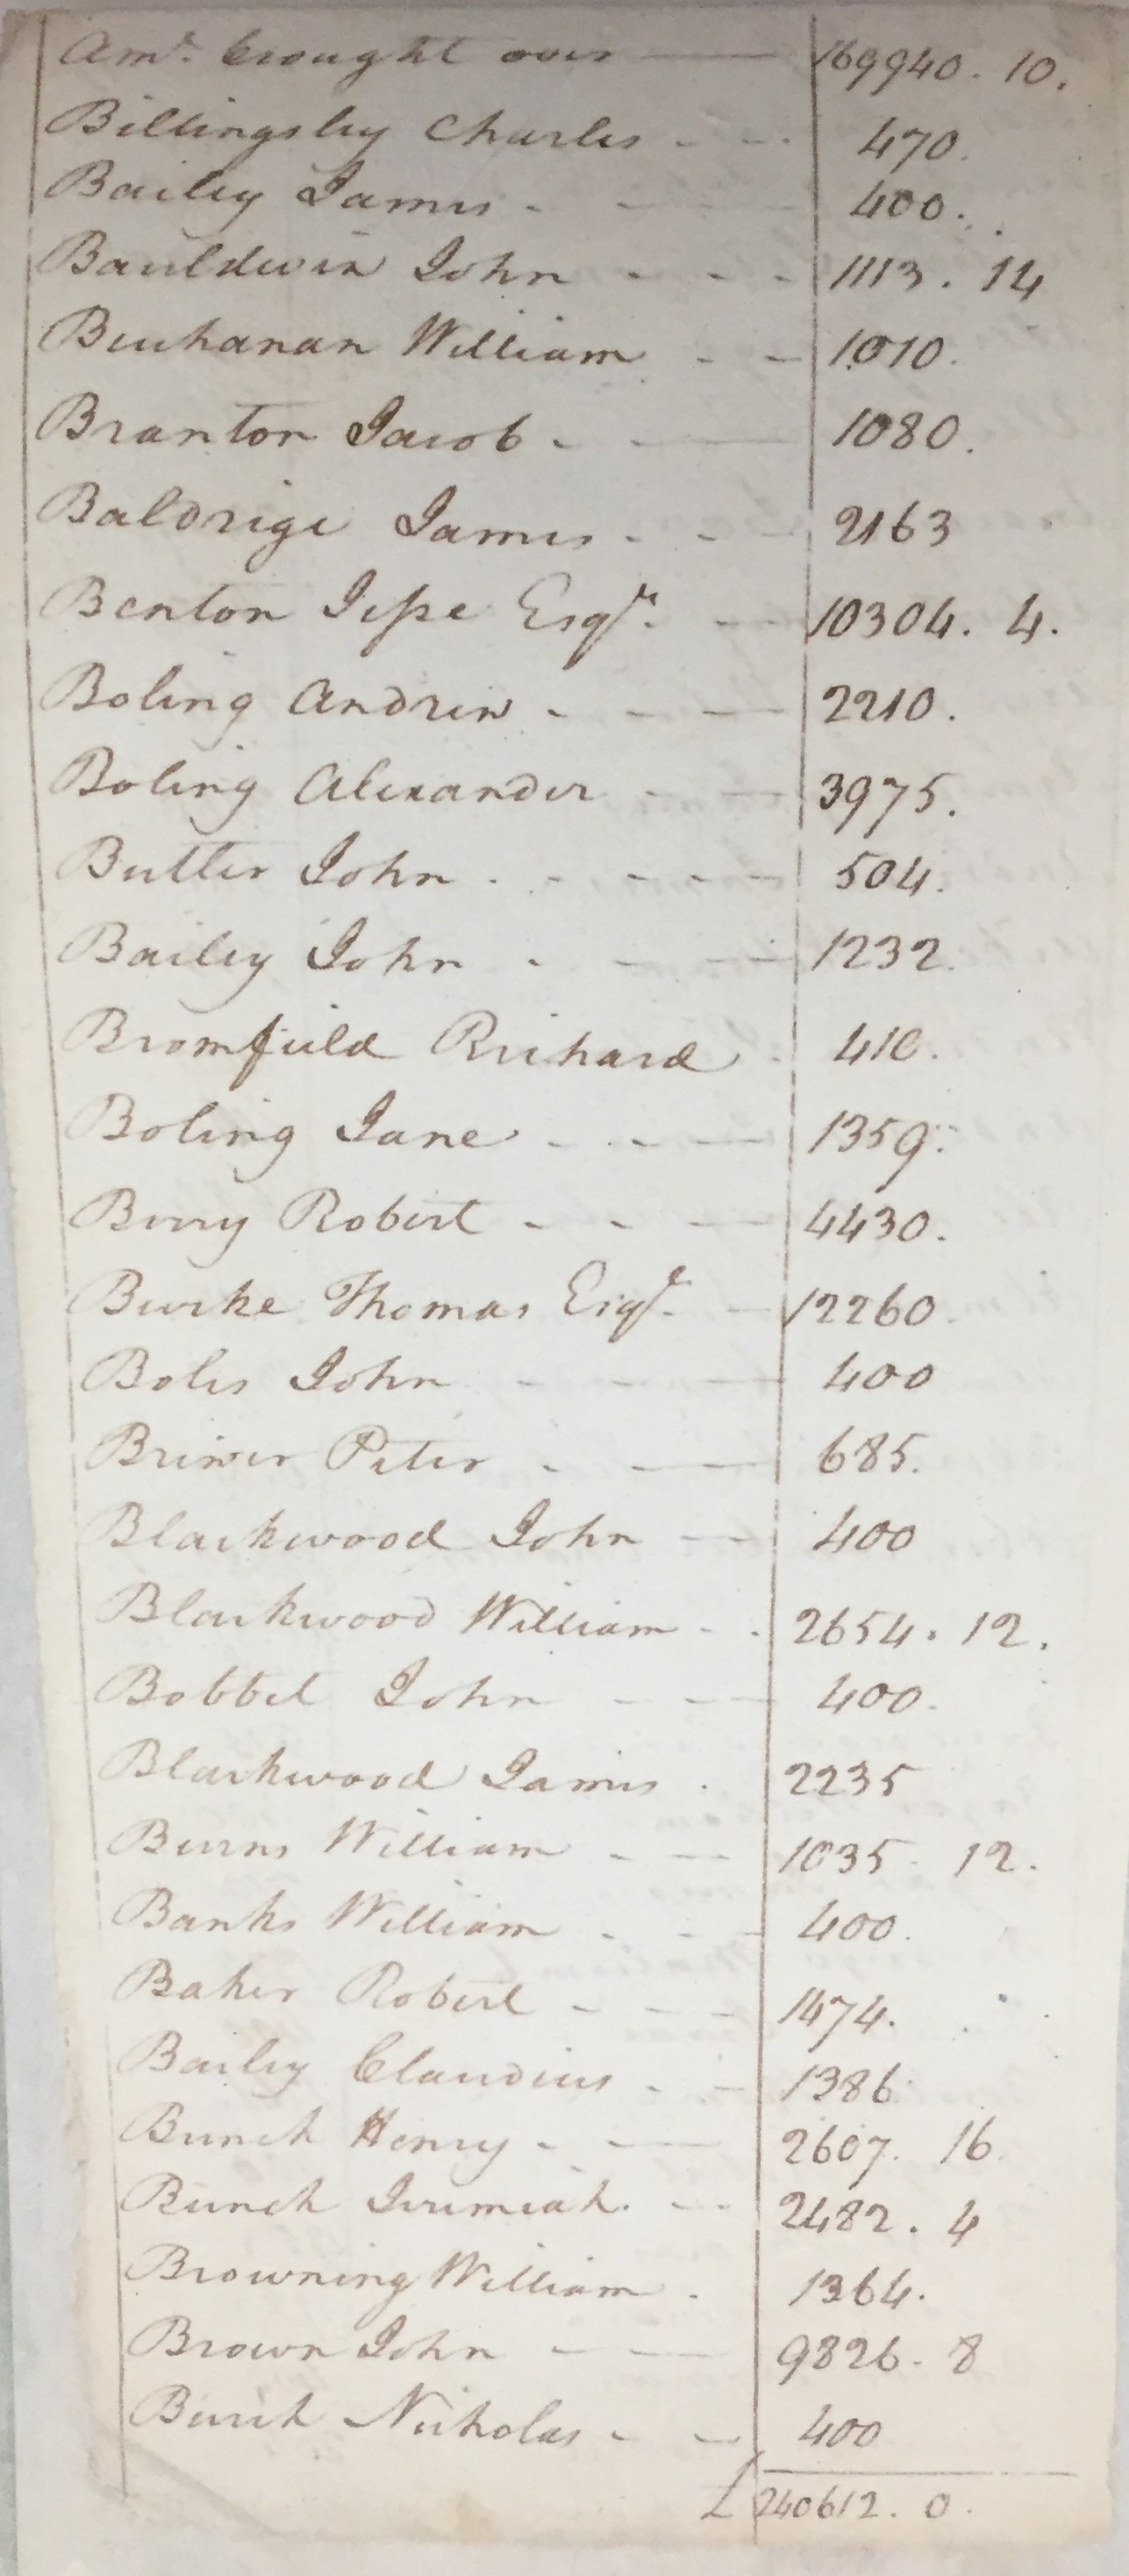 Amt. brought over — 169940. 10.
Billingsley Charles - - - 470.
Bailey James - - 400.
Bauldwin John - - - 1113. 14
Buchanan William - - 1010.
Branton Jacob - — 1080.
Baldrige James - - - 2163
Benton Jesse Esqr. - — 10304. 4.
Boling Andrew - - — 2210.
Boling Alexander - — 3975.
Butler John - - - - - 504.
Bailey John - - — 1232.
Bromfield Richard - 410.
Boling Jane - - — 1359.
Berry Robert - - — 4430.
Burke Thomas Esqr. — 12260.
Boles John - - — 400
Brewer Peter - — 685.
Blackwood John — 400
Blackwood William - - 2654. 12.
Bobbet John - - — 400.
Blackwood James - 2235
Burns William - — 1035. 12.
Banks William - - - 400.
Baker Robert - - — 1474.
Bailey Claudius - - 1386.
Bunch Henry - — 2607. 16
Bunch Jeremiah. - - 2482. 4
Browning William - 1364.
Brown John - — 9826. 8
Burch Nicholas - - 400
£ 240612. 0.